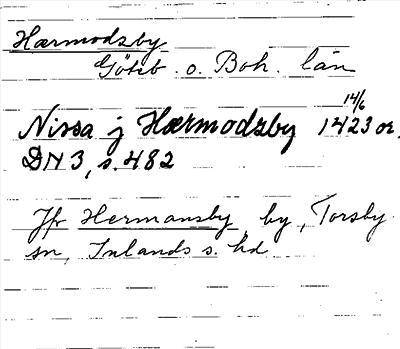 Hærmodzby
Göteb. o. Boh. län
Nissa j Hærmodzby 1423 14/6 or.
DN 3, s. 482
Jfr Hermansby, by, Torsby
sn, Inlands s. hd